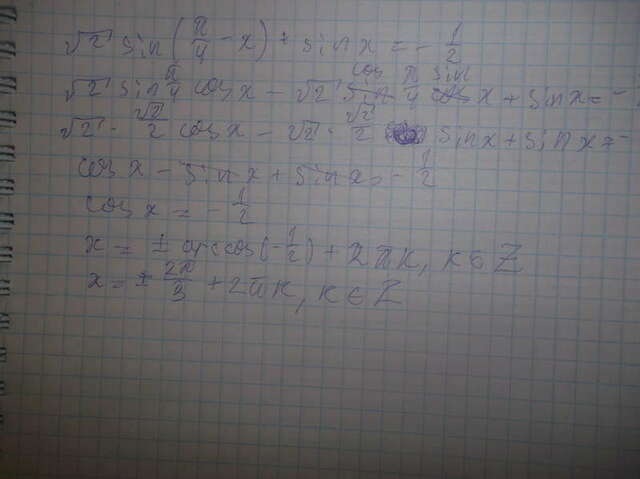 √2 sin(π/4 - x) + sin x = - 1/2
√2 sin π/4 cos x - √2 cos π/4 sin x + sin x = -
√2 · √2/2 cos x - √2 · √2/2 sin x + sin x = -
cos x - sin x + sin x = - 1/2
cos x = - 1/2
x = ± arccos(- 1/2) + 2πk, k ∈ Z
x = ± 2π/3 + 2πk, k ∈ Z